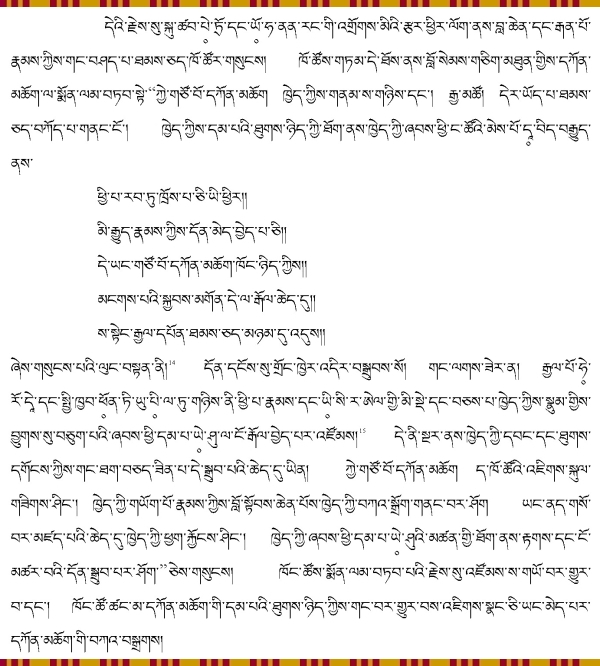 དེའི་རྗེས་སུ་སྐུ་ཚབ་པེ་ཏྲོ་དང་ཡོ་ཧ་ནན་རང་གི་འགྲོགས་མིའི་རྩར་ཕྱིར་ལོག་ནས་བླ་ཆེན་དང་རྒན་པོ་
རྣམས་ཀྱིས་གང་བཤད་པ་ཐམས་ཅད་ཁོ་ཚོར་གསུངས། ཁོ་ཚོས་གཏམ་དེ་ཐོས་ནས་བློ་སེམས་གཅིག་མཐུན་གྱིས་དཀོན་
མཆོག་ལ་སྨོན་ལམ་བཏབ་སྟེ་“ཀྱེ་གཙོ་བོ་དཀོན་མཆོག ཁྱེད་ཀྱིས་གནམ་ས་གཉིས་དང་། རྒྱ་མཚོ། དེར་ཡོད་པ་ཐམས་
ཅད་བཀོད་པ་གནང་ངོ་། ཁྱེད་ཀྱིས་དམ་པའི་ཐུགས་ཉིད་ཀྱི་ཐོག་ནས་ཁྱེད་ཀྱི་ཞབས་ཕྱི་ང་ཚོའི་མེས་པོ་དཱ་བིད་བརྒྱུད་
ནས་
ཕྱི་པ་རབ་ཏུ་ཁྲོས་པ་ཅི་ཡི་ཕྱིར།།
མི་རྒྱུད་རྣམས་ཀྱིས་དོན་མེད་བྱེད་པ་ཅི།།
དེ་ཡང་གཙོ་བོ་དཀོན་མཆོག་ཁོང་ཉིད་ཀྱིས།།
མངགས་པའི་སྐྱབས་མགོན་དེ་ལ་རྒོལ་ཆེད་དུ།།
ས་སྟེང་རྒྱལ་དཔོན་ཐམས་ཅད་མཉམ་དུ་འདུས།།
ཞེས་གསུངས་པའི་ལུང་བསྟན་ནི།14 དོན་དངོས་སུ་གྲོང་ཁྱེར་འདིར་བསྒྲུབས་སོ། གང་ལགས་ཟེར་ན། རྒྱལ་པོ་ཧེ་
རོ་དེ་དང་སྤྱི་ཁྱབ་ཕོན་ཏི་ཡུ་པི་ལ་ཏུ་གཉིས་ནི་ཕྱི་པ་རྣམས་དང་ཡི་སི་ར་ཨེལ་གྱི་མི་སྡེ་དང་བཅས་པ་ཁྱེད་ཀྱིས་སྣུམ་གྱིས་
བྱུགས་སུ་བཅུག་པའི་ཞབས་ཕྱི་དམ་པ་ཡེ་ཤུ་ལ་ངོ་རྒོལ་བྱེད་པར་འཛོམས།15 དེ་ནི་སྔར་ནས་ཁྱེད་ཀྱི་དབང་དང་ཐུགས་
དགོངས་ཀྱིས་གང་ཐག་བཅད་ཟིན་པ་དེ་སྒྲུབ་པའི་ཆེད་དུ་ཡིན། ཀྱེ་གཙོ་བོ་དཀོན་མཆོག ད་ཁོ་ཚོའི་འཇིགས་སྐུལ་
གཟིགས་ཤིང་། ཁྱེད་ཀྱི་གཡོག་པོ་རྣམས་ཀྱིས་བློ་སྟོབས་ཆེན་པོས་ཁྱེད་ཀྱི་བཀའ་སྒྲོག་གནང་བར་ཤོག ཡང་ནད་གསོ་
བར་མཛད་པའི་ཆེད་དུ་ཁྱེད་ཀྱི་ཕྱག་རྐྱོངས་ཤིང་། ཁྱེད་ཀྱི་ཞབས་ཕྱི་དམ་པ་ཡེ་ཤུའི་མཚན་གྱི་ཐོག་ནས་རྟགས་དང་ངོ་
མཚར་བའི་དོན་སྒྲུབ་པར་ཤོག་”ཅེས་གསུངས། ཁོང་ཚོས་སྨོན་ལམ་བཏབ་པའི་རྗེས་སུ་འཛོམས་ས་གཡོ་བར་གྱུར་
བ་དང་། ཁོང་ཚོ་ཚང་མ་དཀོན་མཆོག་གི་དམ་པའི་ཐུགས་ཉིད་ཀྱིས་གང་བར་གྱུར་བས་འཇིགས་སྣང་ཅི་ཡང་མེད་པར་
དཀོན་མཆོག་གི་བཀའ་བསྒྲགས།